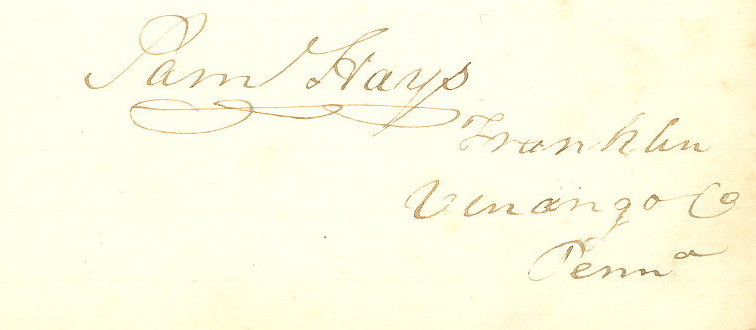 Saml Hays
Franklin
Venango Co
Penna